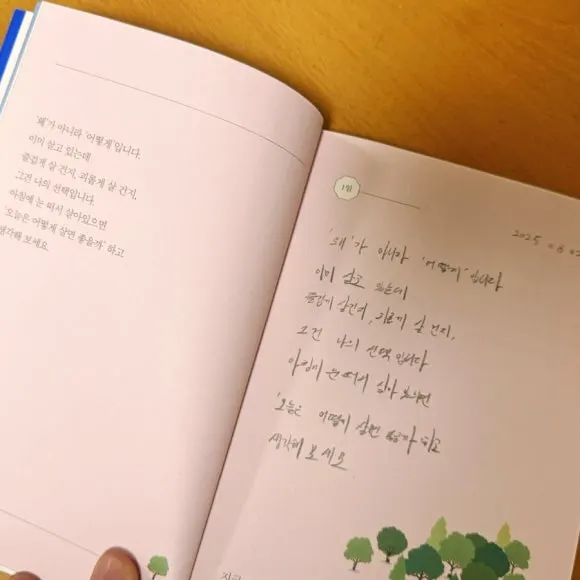 '왜'가 아니라 '어떻게'입니다.
이미 살고 있는데
즐겁게 살 건지, 괴롭게 살 건지,
그건 나의 선택입니다.
아침에 눈 떠서 살아있으면
'오늘은 어떻게 살면 좋을까' 하고
생각해 보세요.
1일
2025
'왜'가 아니라 '어떻게' 입니다
이미 살고 있는데
살건지, 살 건지,
그건 나의 선택입니다
아침에 눈 떠서 살아
'오늘은 어떻게 살면 하고
생각해 보세요
지금